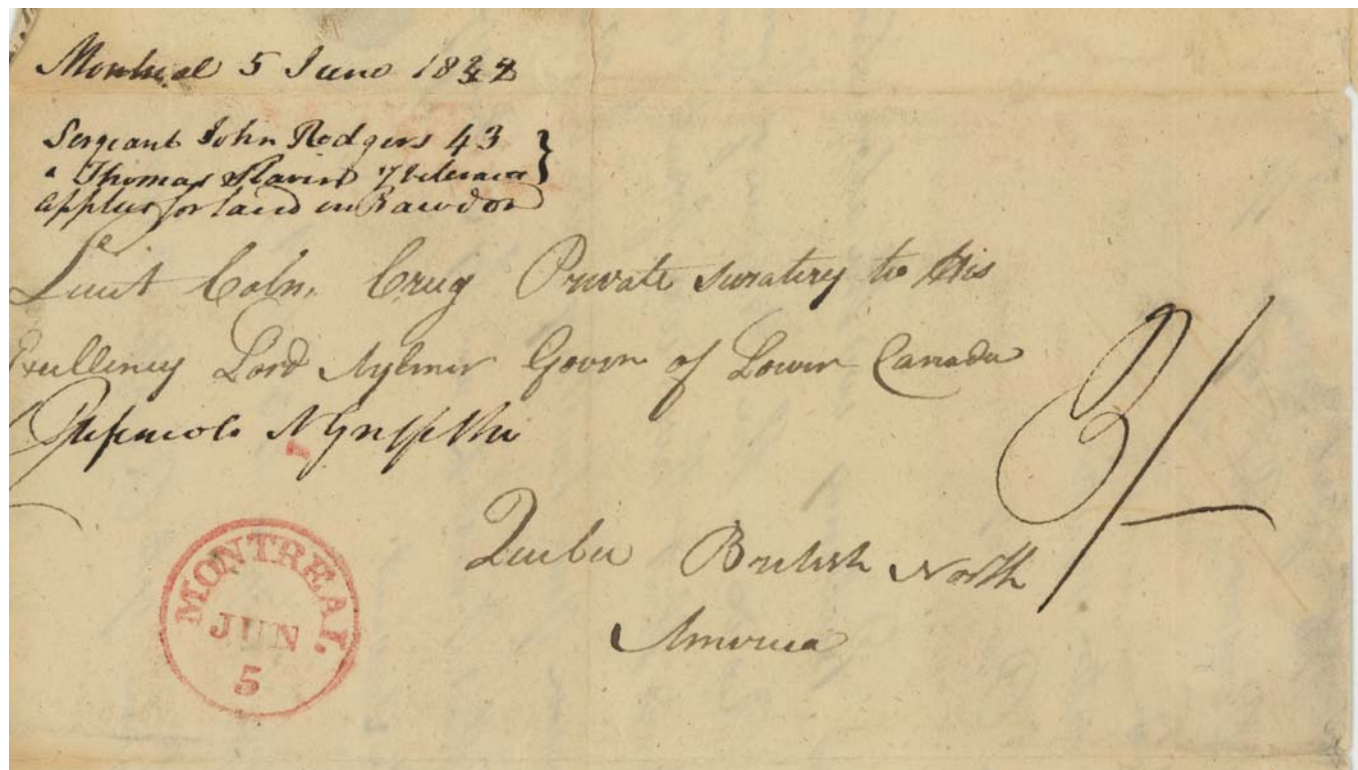 Montreal 5 June 18
Sergeant John Rodgers 43
" Thomas
applies for land in Rawdon
Lieut Coln. Crug Private Secratery to His
Excellency Lord Aylmer Govrn of Lower Canada
Quebec British North
America
3/-
MONTREAL
JUN
5